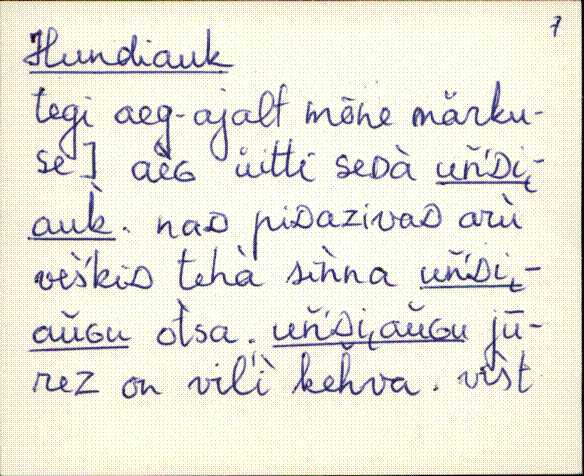 7
Hundiauk
tegi aeg-ajalt mõne märku-
se] aèɢ üìtti seᴅà uǹ'ᴅi̮-
auk̀. naᴅ piᴅazivaᴅ arù
vèš́kiᴅ tehà sìǹna uǹ'ᴅi̮-
aŭɢu òtsa. uǹ'ᴅi̮aŭɢu jū-
rez on vil'ì kèhva. vìst